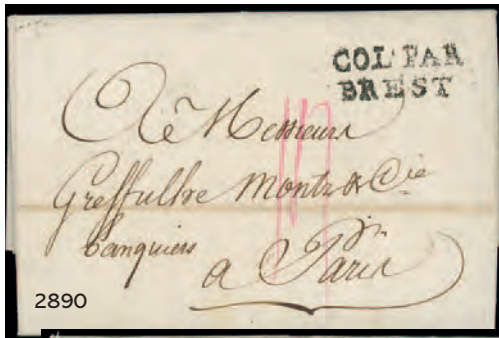 COL PAR
BREST
A Messieurs
Greffulhe Montz & Cie
banquiers
a Paris
2890